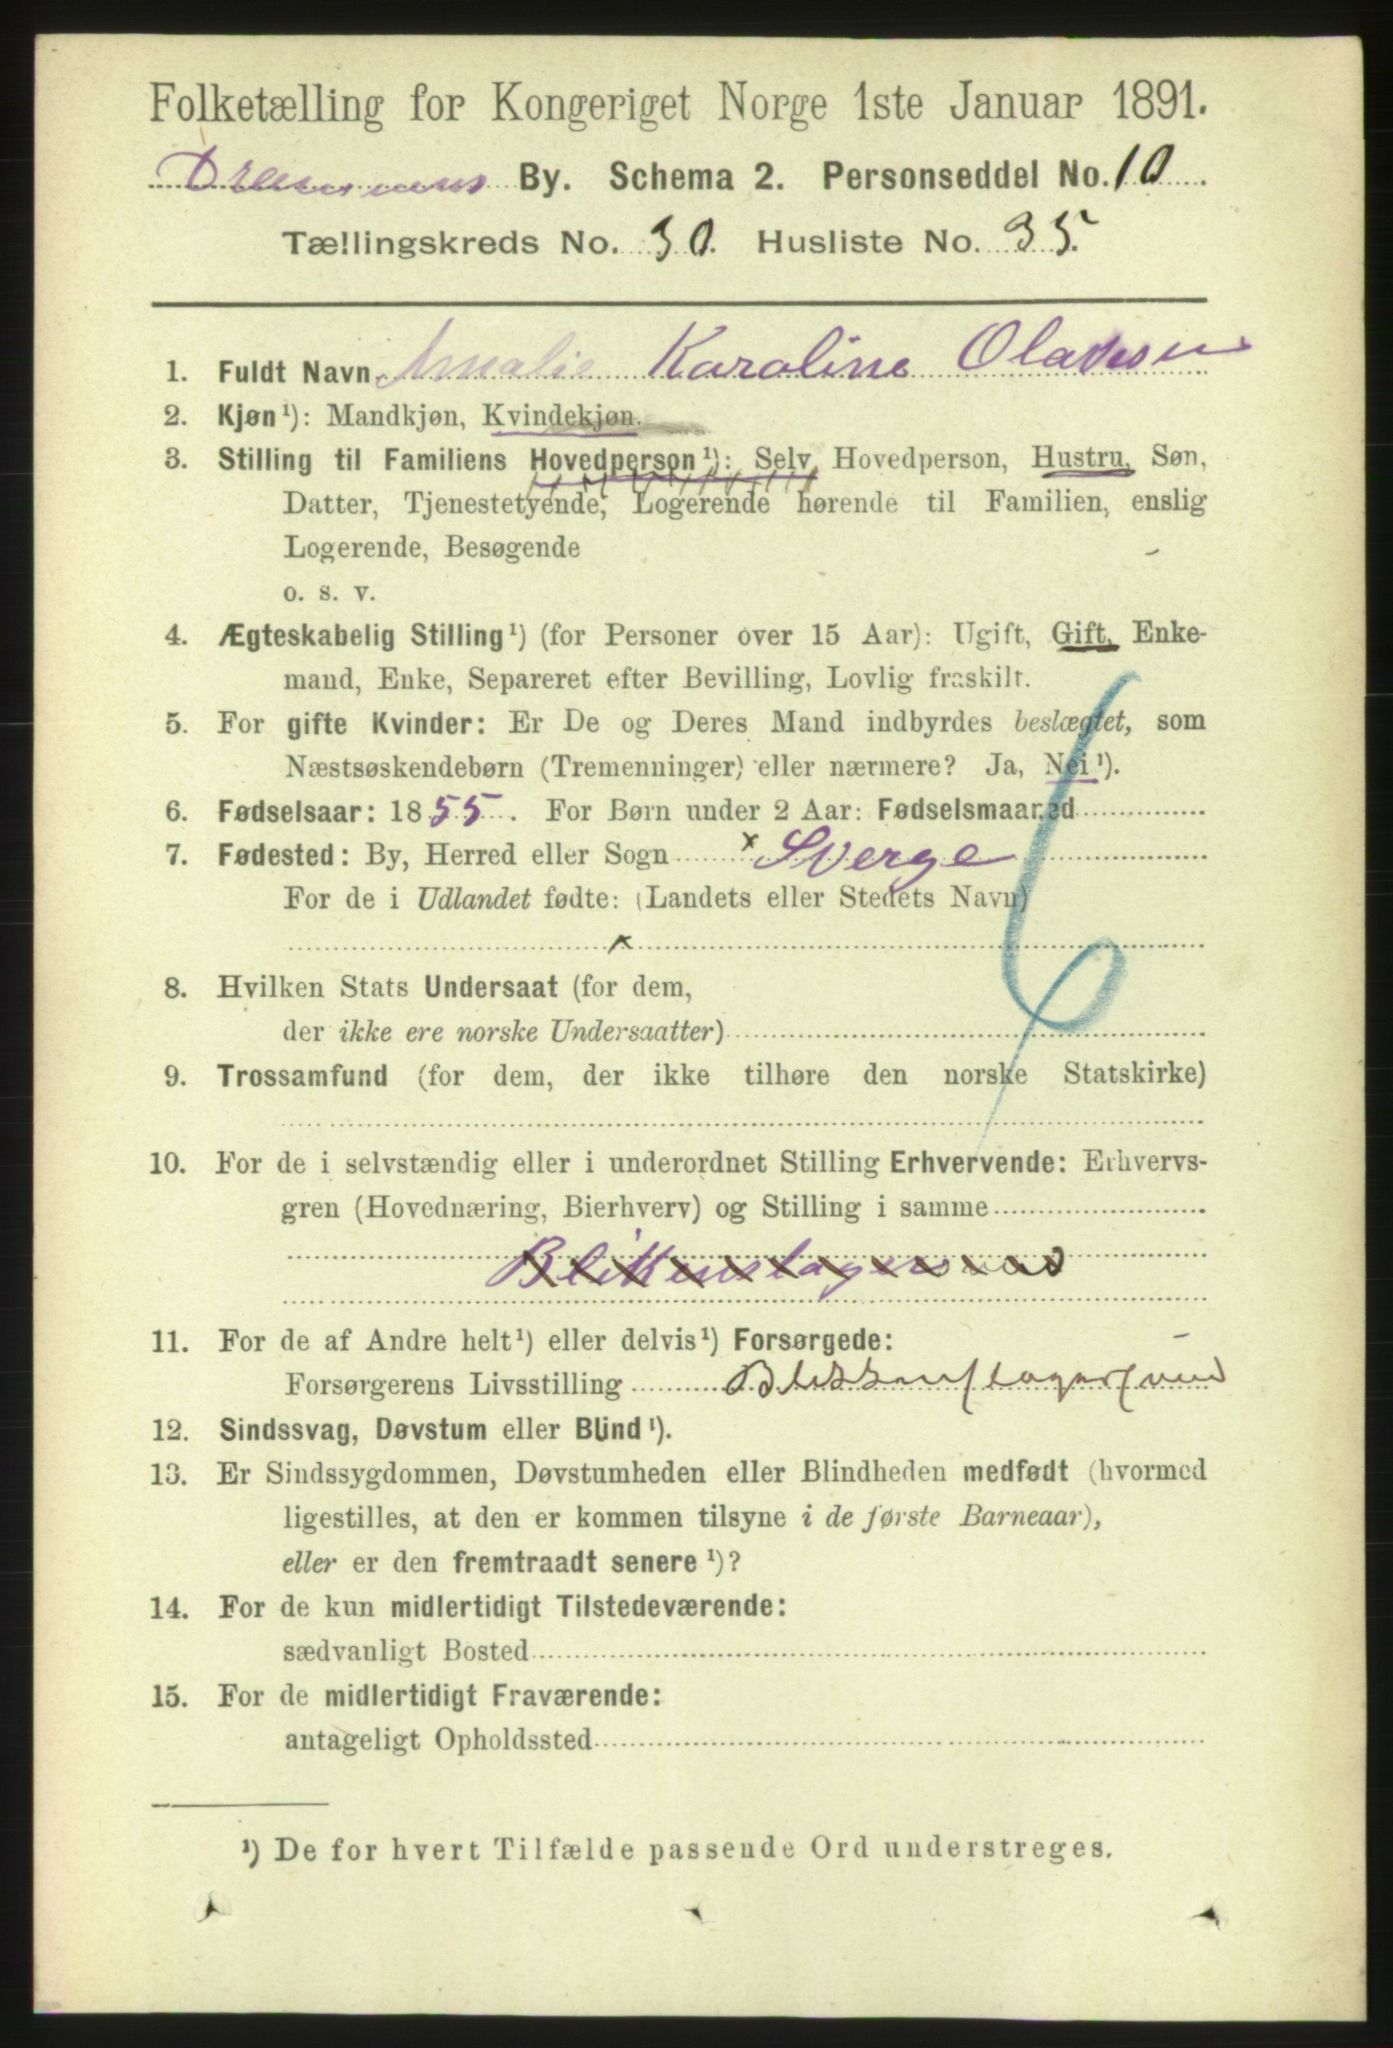 Folketælling for Kongeriget Norge 1ste Januar 1891.
Drammens By. Schema 2. Personseddel No. 10
Tællingskreds No. 30. Husliste No. 35.
1. Fuldt Navn Amalie Karoline Olavesen
2. Kjøn¹): Mandkjøn, Kvindekjøn.
3. Stilling til Familiens Hovedperson¹): Selv Hovedperson, Hustru, Søn,
Datter, Tjenestetyende, Logerende hørende til Familien, enslig
Logerende, Besøgende
o. s. v.
4. Ægteskabelig Stilling¹) (for Personer over 15 Aar): Ugift, Gift, Enke-
mand, Enke, Separeret efter Bevilling, Lovlig fraskilt.
5. For gifte Kvinder: Er De og Deres Mand indbyrdes beslægtet, som
Næstsøskendebørn (Tremenninger) eller nærmere? Ja, Nei¹).
6. Fødselsaar: 1855. For Børn under 2 Aar: Fødselsmaaned
7. Fødested: By, Herred eller Sogn x Sverge
For de i Udlandet fødte: (Landets eller Stedets Navn)
x
8. Hvilken Stats Undersaat (for dem,
der ikke ere norske Undersaatter)
9. Trossamfund (for dem, der ikke tilhøre den norske Statskirke)
10. For de i selvstændig eller i underordnet Stilling Erhvervende: Erhvervs-
gren (Hovednæring, Bierhverv) og Stilling i samme
Blikenslagersvend
11. For de af Andre helt¹) eller delvis¹) Forsørgede:
Forsørgerens Livsstilling Blikkenslagersvend
12. Sindssvag, Døvstum eller Blind¹).
13. Er Sindssygdommen, Døvstumheden eller Blindheden medfødt (hvormed
ligestilles, at den er kommen tilsyne i de første Barneaar),
eller er den fremtraadt senere¹)?
14. For de kun midlertidigt Tilstedeværende:
sædvanligt Bosted
15. For de midlertidigt Fraværende:
antageligt Opholdssted
¹) De for hvert Tilfælde passende Ord understreges.